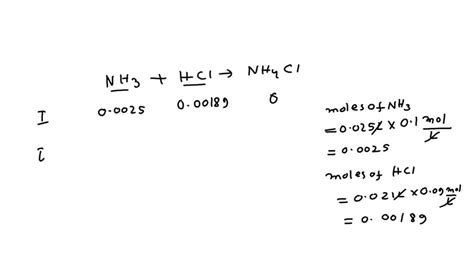 NH3 + HCl → NH4Cl
I 0.0025 0.00189 0
I
moles of NH3
= 0.025L × 0.1 mol/L
= 0.0025
moles of HCl
= 0.021L × 0.09 mol/L
= 0.00189